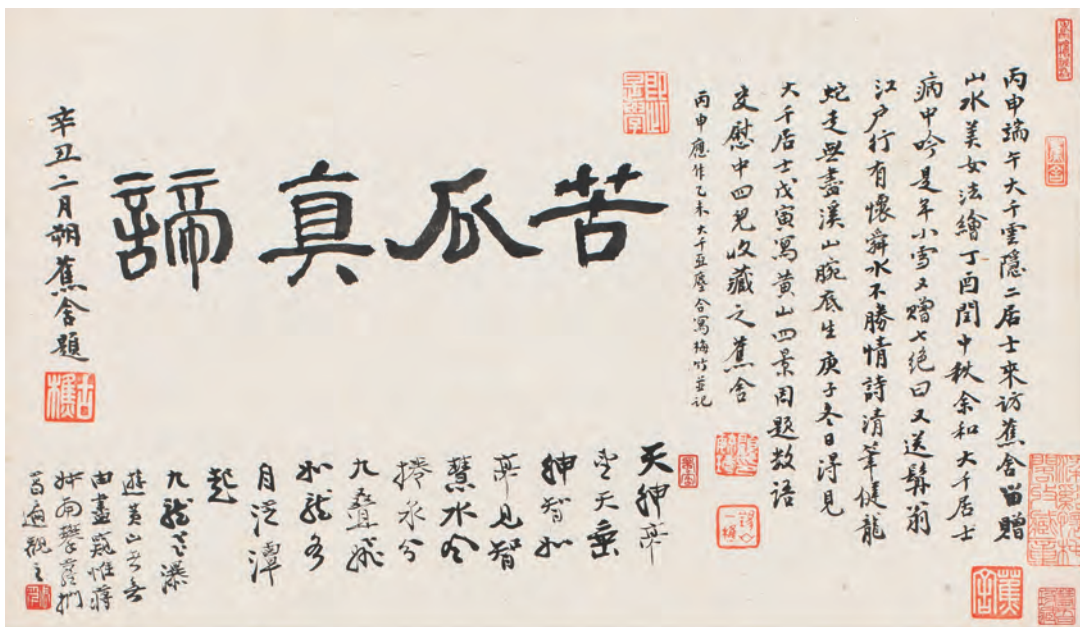 丙申端午大千雲隱二居士來访蕉舍留贈
山水美女法繪丁酉閏中秋余和大千居士
病中吟是年小雪又贈七絕曰又送髯翁
江户行有懷舜水不勝情詩清筆健龍
蛇走無盡溪山腕底生庚子冬日得見
大千居士戊寅寫黃山四景因題数語
爰慰中四兄收藏之蕉舍
丙申應作乙未大千亞塵合寫梅竹並記
苦瓜真諦
辛丑二月朔蕉舍題
天紳亭
望天垂
紳智如
亭見智
慧水
捲冰分
九疊飛
如龍
月浸潭
起
九龍之瀑
遊黃山者無
由盡窺惟蔣
雨攀蘿捫
葛遍觀之
即此是學
古樵
蕉舍